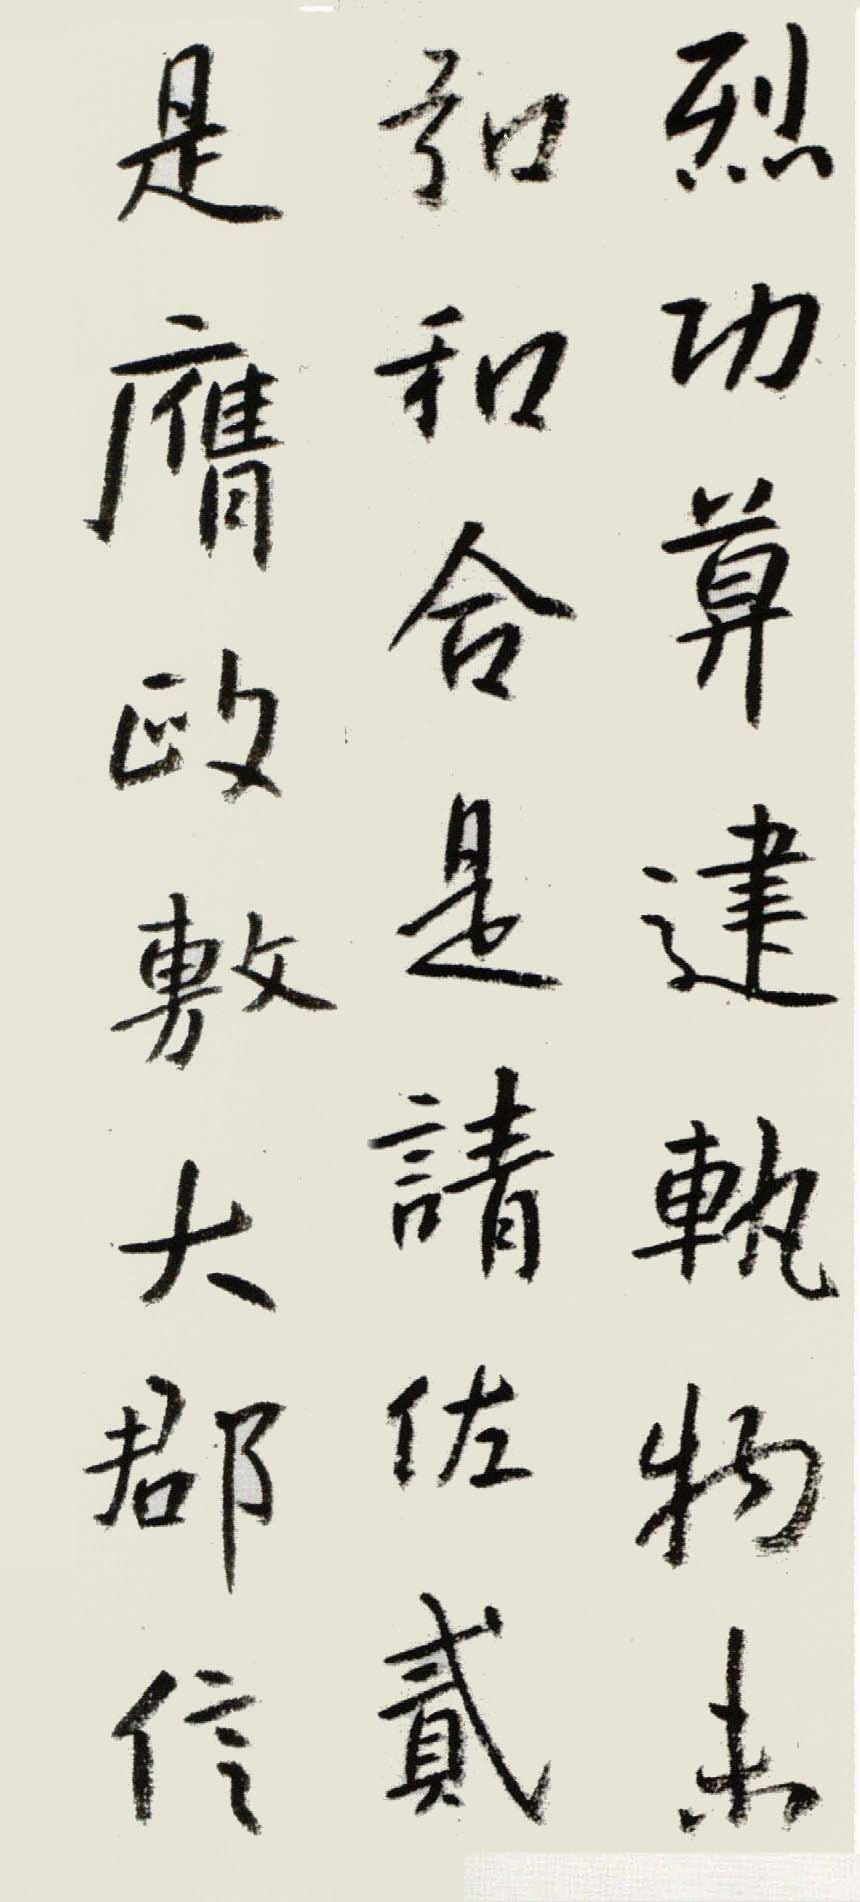 烈功算建執物未
弘和合是請佐貳
是膺政敷大郡信